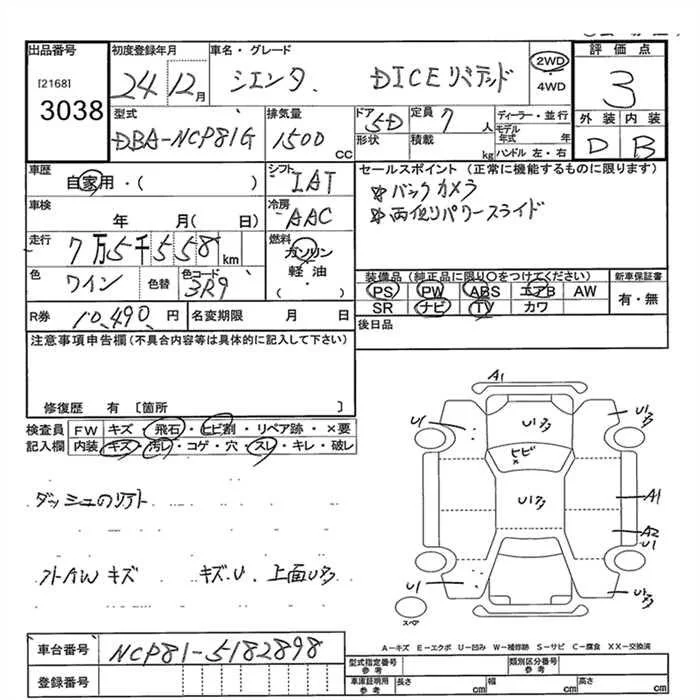 出品番号 初度登録年月 車名・グレード 評価点
[2168]
3038
24 12月
シエンタ. DICEリミテッド
2WD
・
4WD
3
型式 排気量 ドア 定員 7人 ディーラー・並行 外装 内装
DBA-NCP81G 1500 CC 5D
形状 積載 kg
モデル年式 年
ハンドル 左・右
D B
車歴 シフト セールスポイント(正常に機能するものに限ります)
自家用・( ) IAT
※バックカメラ
車検 冷房
年 月( 日) AAC
※両側パワースライド
走行 燃料
7万5千558km ガソリン
軽油・
( )
色 ワイン 色替 色コード 3R9
装備品(純正品に限り○をつけてください) 新車保証書
PS PW ABS エアB AW 有・無
SR ナビ TV カワ
R券 10,490 円 名変期限 月 日
後日品
注意事項申告欄(不具合内容等は具体的に記入して下さい)
修復歴 有 〔箇所 〕
検査員 FW キズ・飛石・ヒビ割・リペア跡・×要
記入欄 内装 キズ・汚レ・コゲ・穴・スレ・キレ・破レ
A1
U1 U1多 U1多
ヒビ
×
U1多 A1
A2
U1
U1 U1多
スペア
フトAW キズ キズ.U. 上面U多
A-キズ E-エクボ U-凹み W-補修跡 S-サビ C-腐食 XX-交換済
車台番号 NCP81-5182898
登録番号
型式指定番号 参考 類別区分番号 参考
車庫証明用 参考 長さ cm 幅 cm 高さ cm